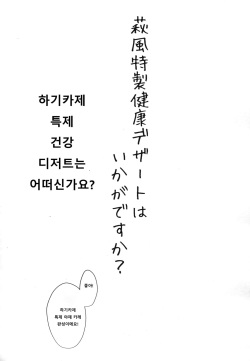 萩風特製健康デザートは
いかがですか?
하기카제
특제
건강
디저트는
어떠신가요?
좋아!
하기카제
특제 야채 카레
완성이에요!